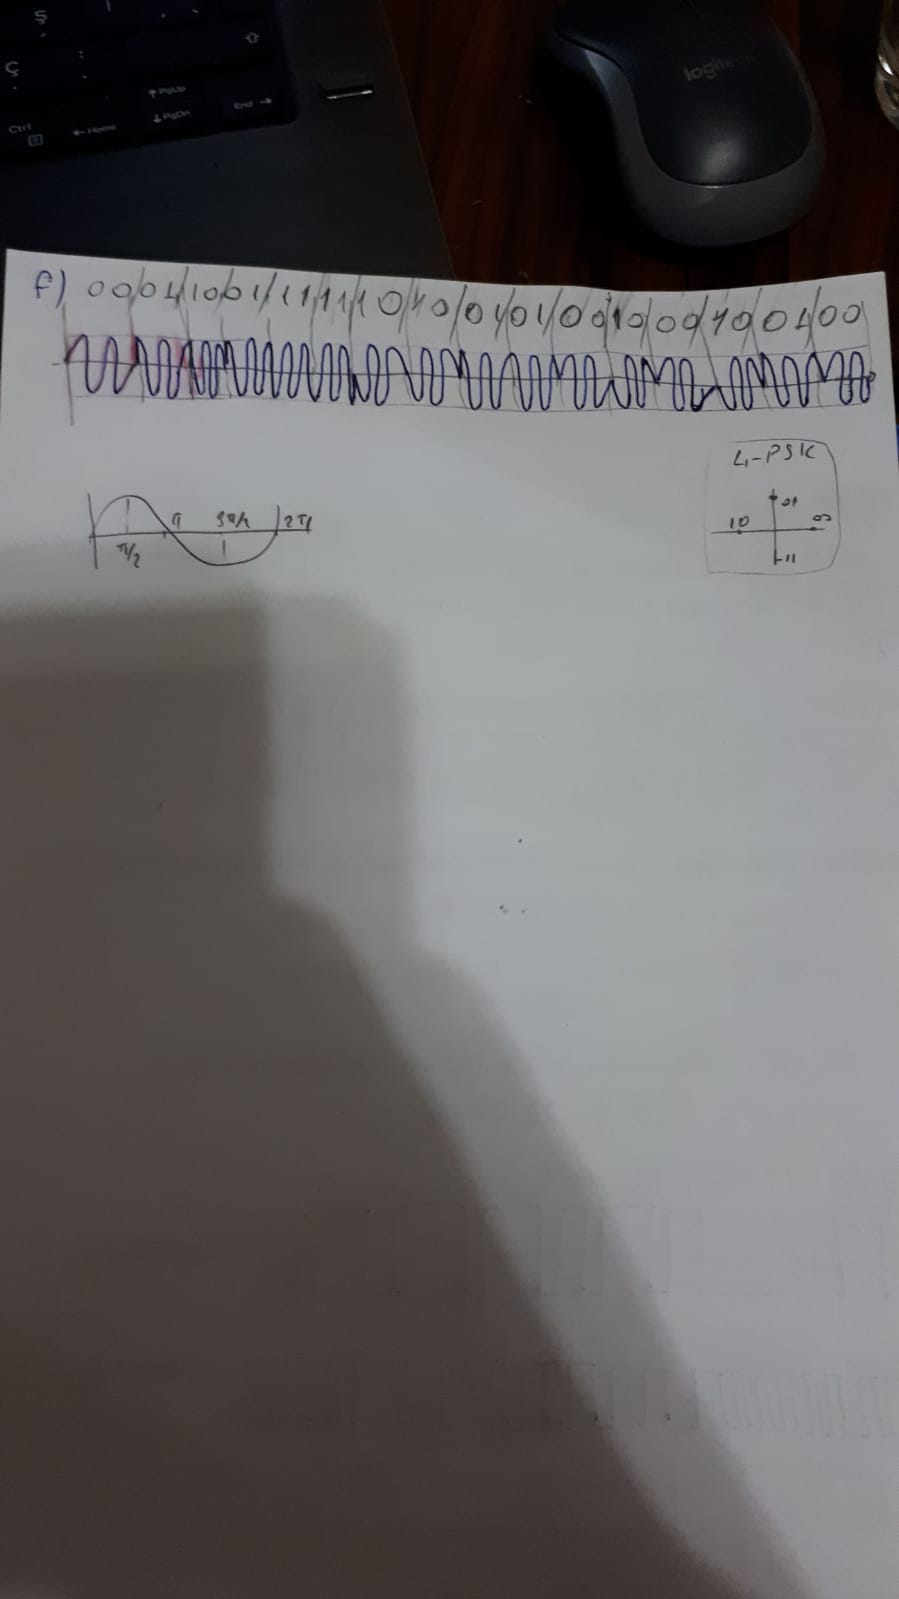 Ş
Ç
PgUp
Ctrl Home PgDn End
logitech
f) 00/01/10/01/11/11/11/10/10/01/01/00/10/00/10/01/00
4-PSK
01
10 00
11
π 3π/2 2π
π/2